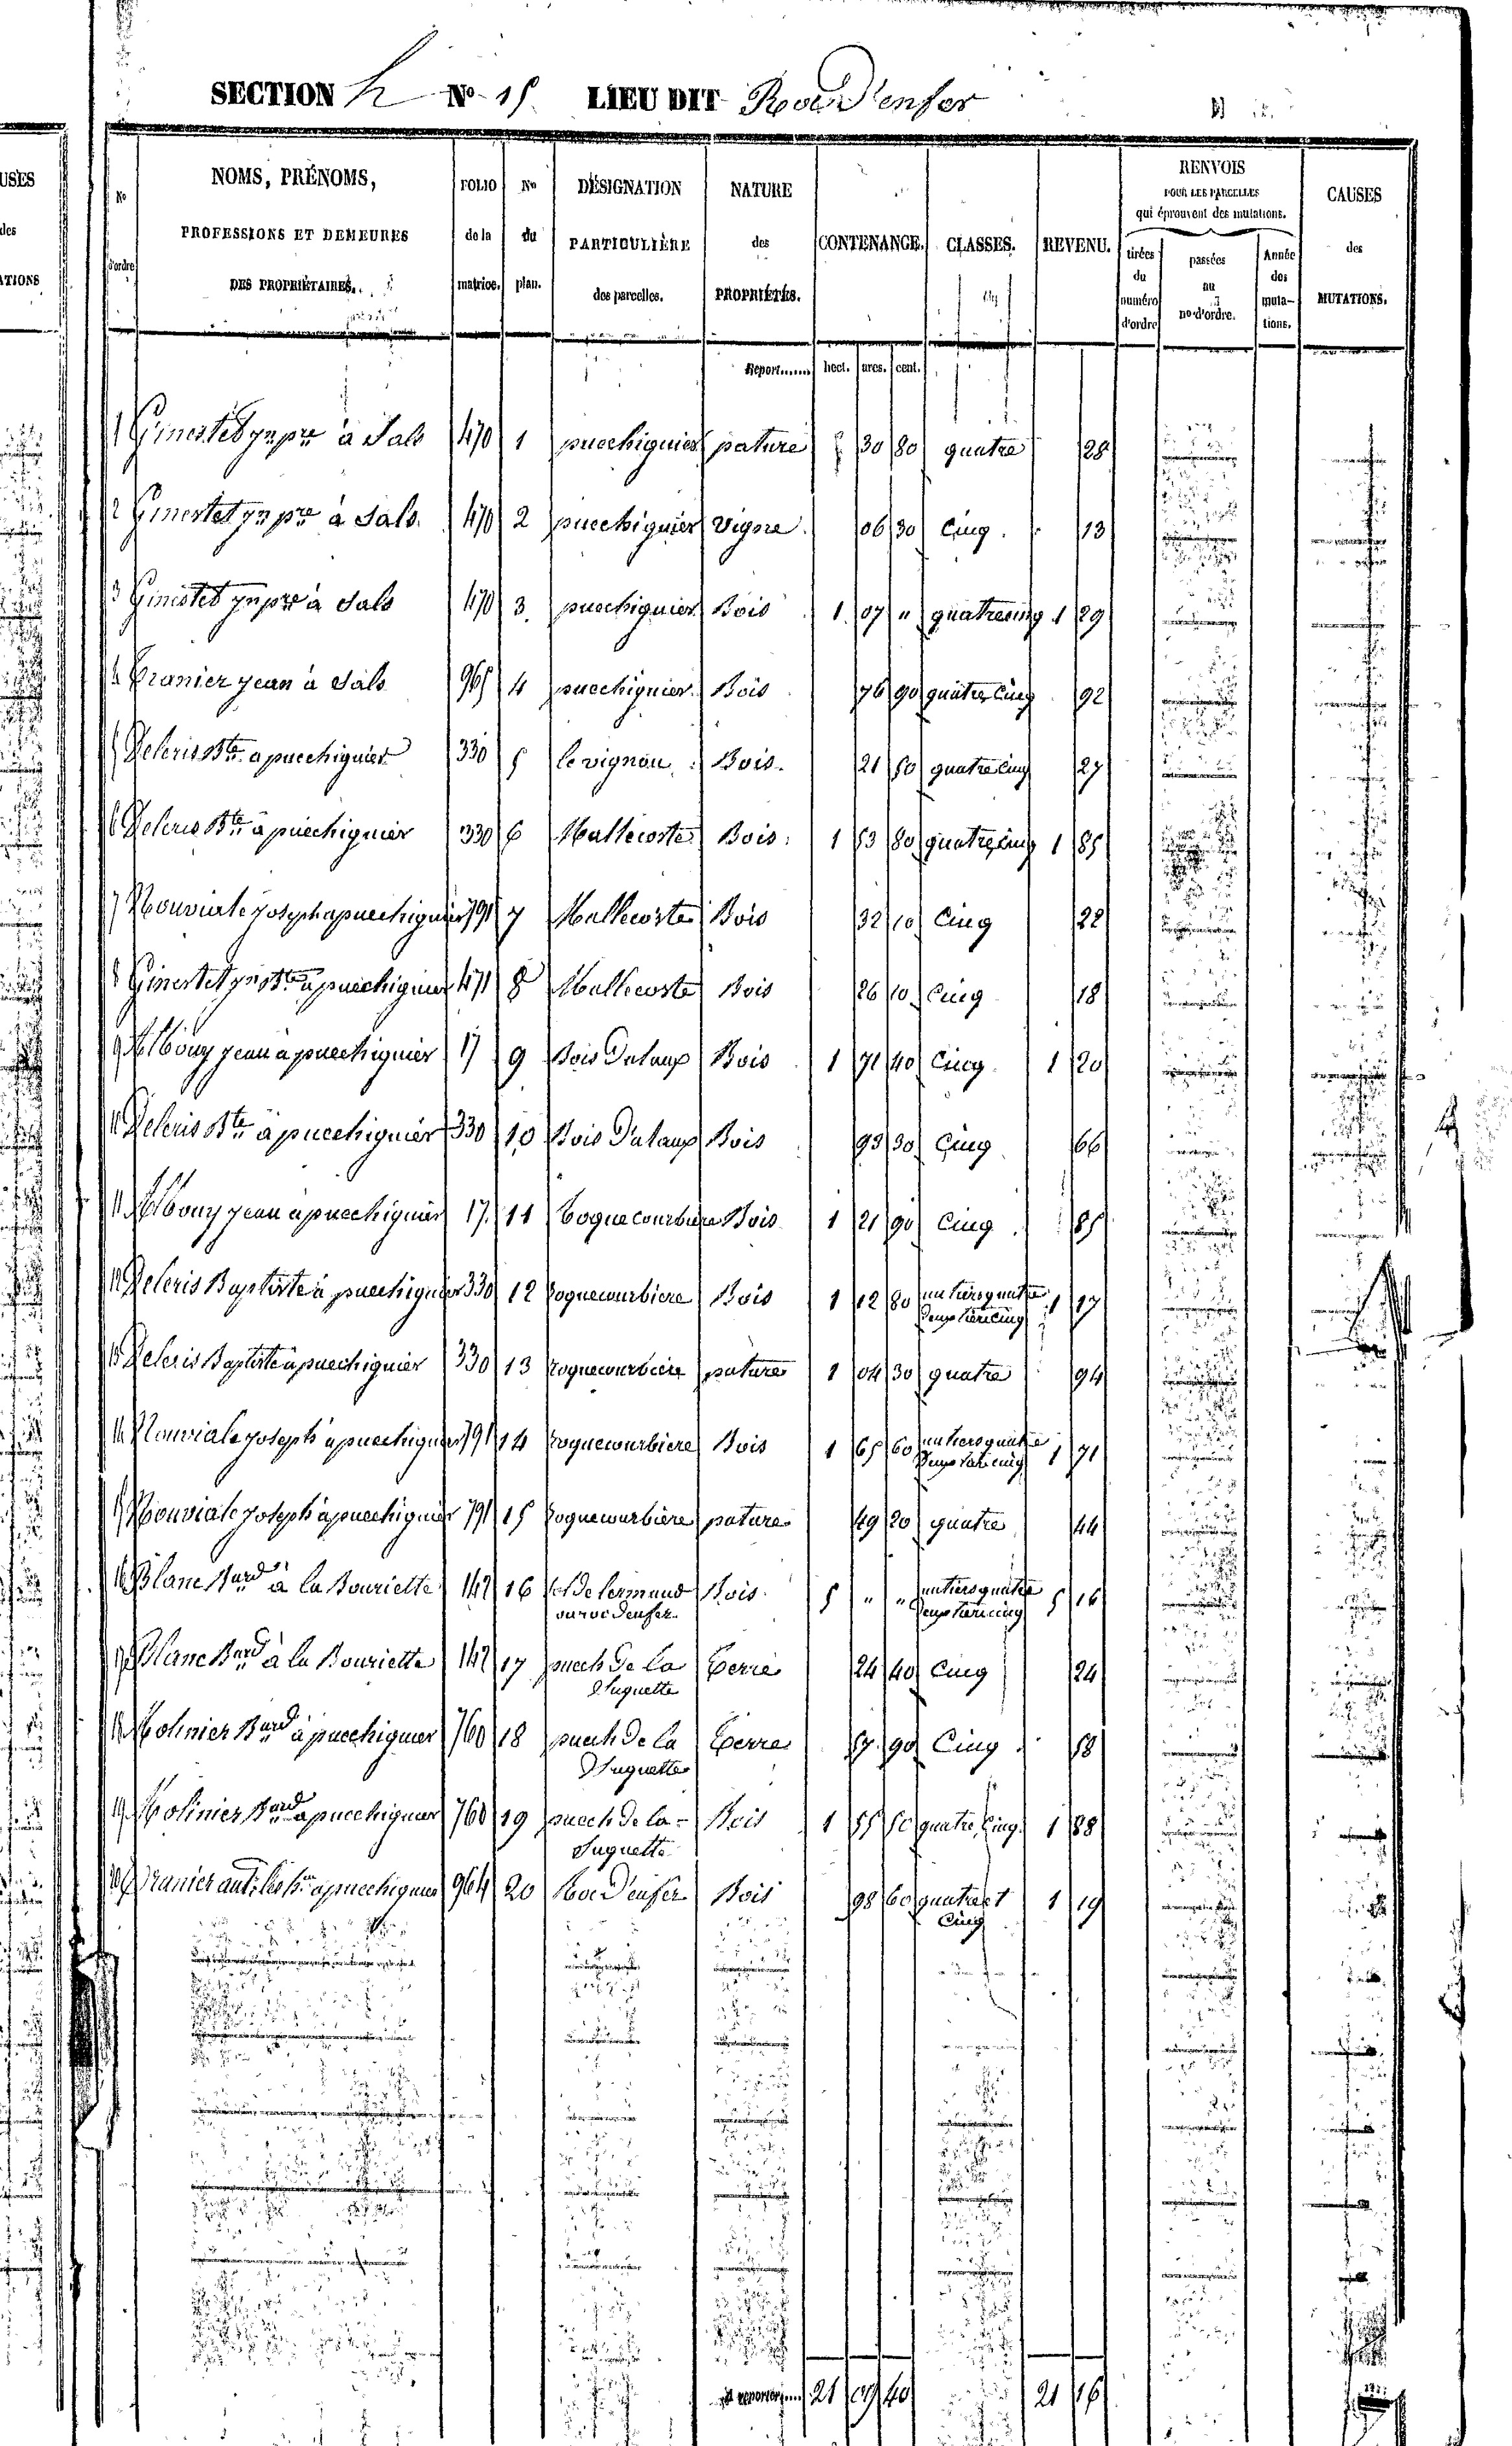 SECTION h N° 15 LIEU DIT Roc d'enfer
USES
des
ATIONS
N° d'ordre
NOMS, PRÉNOMS,
PROFESSIONS ET DEMEURES
DES PROPRIÉTAIRES.
FOLIO de la matrice.
N° du plan.
DÉSIGNATION
PARTICULIÈRE
des parcelles.
NATURE
des
PROPRIÉTÉS.
CONTENANCE.
CLASSES.
REVENU.
RENVOIS
POUR LES PARCELLES
qui éprouvent des mutations.
tirées du numéro d'ordre
passées au no d'ordre.
Année des mutations.
CAUSES
des
MUTATIONS.
Report...... hect. ares. cent.
1 Ginestet à Sals 470 1 puechiguier pature 30 80 quatre 28
2 Ginestet à Sals 470 2 puechiguier vigne 06 30 Cinq 13
3 Ginestet à Sals 470 3 puechiguier Bois 1 07 " quatre cinq 1 29
4 Granier jean à Sals 965 4 puechiguier Bois 76 90 quatre Cinq 92
5 Deleris Bte a puechiguier 330 5 le vignou Bois 21 50 quatre cinq 27
6 Deleris Bte à puechiguier 330 6 Mallecoste Bois 1 53 80 quatre cinq 1 85
7 Nouviale joseph a puechiguier 791 7 Mallecoste Bois 32 10 Cinq 22
8 Ginestet à puechiguier 471 8 Mallecoste Bois 26 10 Cinq 18
9 Albouy jean a puechiguier 17 9 Bois Bois 1 71 40 Cinq 1 20
10 Deleris Bte à puechiguier 330 10 Bois Bois 93 30 Cinq 66
11 Albouy jean a puechiguier 17 11 Roquecourbiere Bois 1 21 90 Cinq 85
12 Deleris Baptiste à puechiguier 330 12 roquecourbiere Bois 1 12 80 un tiers quatre 1 17
Deux tiers Cinq
13 Deleris Baptiste à puechiguier 330 13 roquecourbiere pature 1 04 30 quatre 94
14 Nouviale joseph à puechiguier 791 14 roquecourbiere Bois 1 65 60 un tiers quatre 1 71
Deux tiers cinq
15 Nouviale joseph à puechiguier 791 15 roquecourbiere pature 49 20 quatre 44
16 Blanc Bard à la Bouriette 142 16 Bois 5 " " un tiers quatre 5 16
ou roc d'enfer Deux tiers cinq
17 Blanc Bard à la Bouriette 142 17 puech de la Terre 24 40 Cinq 24
Duguette
18 Molinier Bard à puechiguier 760 18 puech de la Terre 57 90 Cinq 58
Duguette
19 Molinier Bard a puechiguier 760 19 puech de la Bois 1 55 50 quatre, Cinq 1 88
Duguette
20 Granier a puechiguier 964 20 Roc d'enfer Bois 98 60 quatre et 1 19
Cinq
A reporter.... 21 09 40 21 16